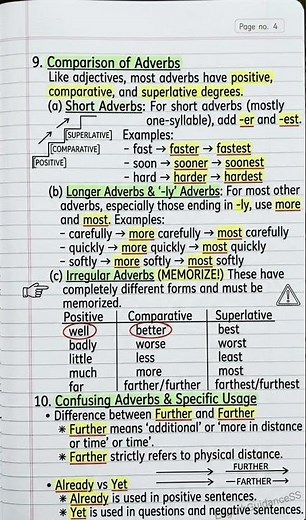 Page no. 4
9. Comparison of Adverbs
Like adjectives, most adverbs have positive,
comparative, and superlative degrees.
(a) Short Adverbs: For short adverbs (mostly
one-syllable), add -er and -est.
[SUPERLATIVE]
[COMPARATIVE]
[POSITIVE]
Examples:
- fast → faster → fastest
- soon → sooner → soonest
- hard → harder → hardest
(b) Longer Adverbs & '-ly' Adverbs: For most other
adverbs, especially those ending in -ly, use more
and most. Examples:
- carefully → more carefully → most carefully
- quickly → more quickly → most quickly
- softly → more softly → most softly
(c) Irregular Adverbs (MEMORIZE!) These have
completely different forms and must be
memorized.
Positive Comparative Superlative
well better best
badly worse worst
little less least
much more most
far farther/further farthest/furthest
10. Confusing Adverbs & Specific Usage
• Difference between Further and Farther
* Further means 'additional' or 'more in distance
or time' or time'.
* Farther strictly refers to physical distance.
FURTHER
• Already vs Yet
FARTHER
* Already is used in positive sentences.
* Yet is used in questions and negative sentences.